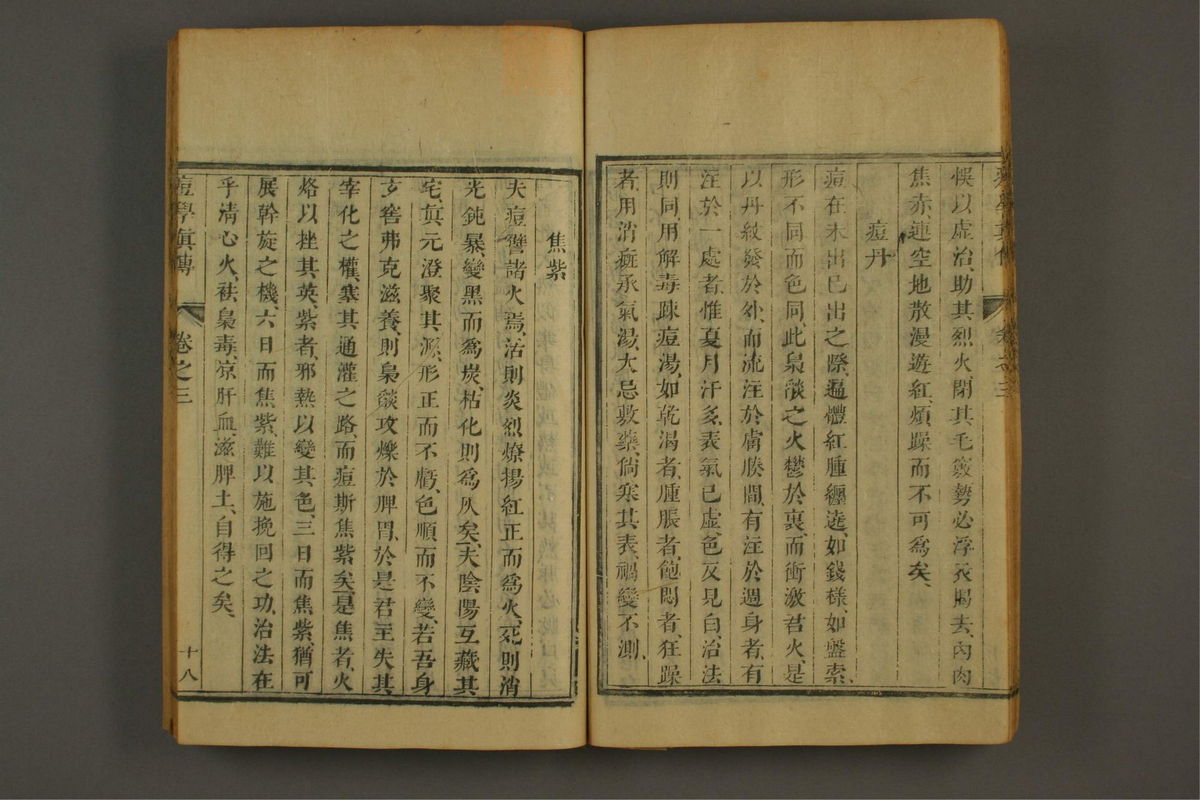 悞以虛治、助其烈火、閉其毛竅、勢必浮衣揭去、肉肉
焦赤、連空地散漫遊紅、煩躁而不可爲矣、
痘丹
痘在未出已出之際、遍體紅腫纏遶、如錢樣、如盤索、
形不同而色同、此梟燄之火鬱於裏、而衝激君火、是
以丹紋發於外、而流注於膚腠間、有注於週身者、有
注於一處者、惟夏月汗多、表氣已虛、色反見白、治法
則同、用解毒踈痘湯、如乾渴者、腫脹者、飽悶者、狂躁
者、用消癍承氣湯、大忌敷藥、倘寒其表、禍變不測、
焦紫
夫痘讐諸火焉、活則炎烈燎揚、紅正而爲火、死則消
光鈍暴、變黑而爲炭、枯化則爲灰矣、夫陰陽互藏其
宅、眞元澄聚其源、形正而不虧、色順而不變、若吾身
玄窖弗克滋養、則梟燄攻爍於脾胃、於是君主失其
宰化之權、塞其通灌之路、而痘斯焦紫矣、是焦者、火
烙以挫其英、紫者、邪熱以變其色、三日而焦紫、猶可
展幹旋之機、六日而焦紫、難以施挽回之功、治法在
乎清心火、袪梟毒、凉肝血、滋脾土、自得之矣、
痘學眞傳 卷之三 十八